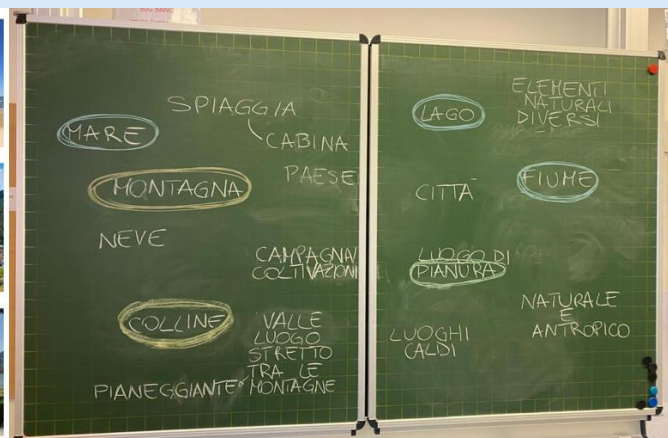 SPIAGGIA
MARE
CABINA
MONTAGNA
PAESE
NEVE
CAMPAGNA/
COLTIVAZIONI
COLLINE
VALLE
LUOGO
STRETTO
TRA LE
MONTAGNE
PIANEGGIANTE
ELEMENTI
NATURALI
DIVERSI
LAGO
FIUME
CITTÀ
LUOGO DI
PIANURA
NATURALE
E
ANTROPICO
LUOGHI
CALDI